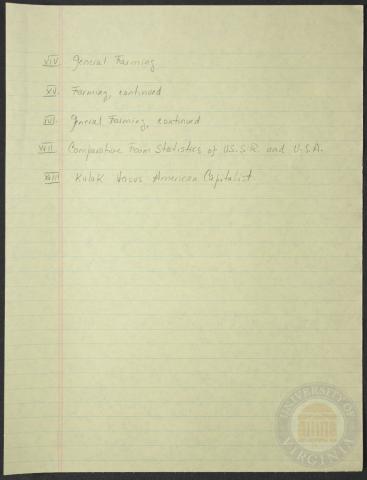 XIV. General Farming
XV. Farming, continued
XVI. General Farming, continued
XVII. Comparative Farm Statistics of U.S.S.R. and U.S.A.
XVIII Kulak Versus American Capitalist.
UNIVERSITY OF VIRGINIA